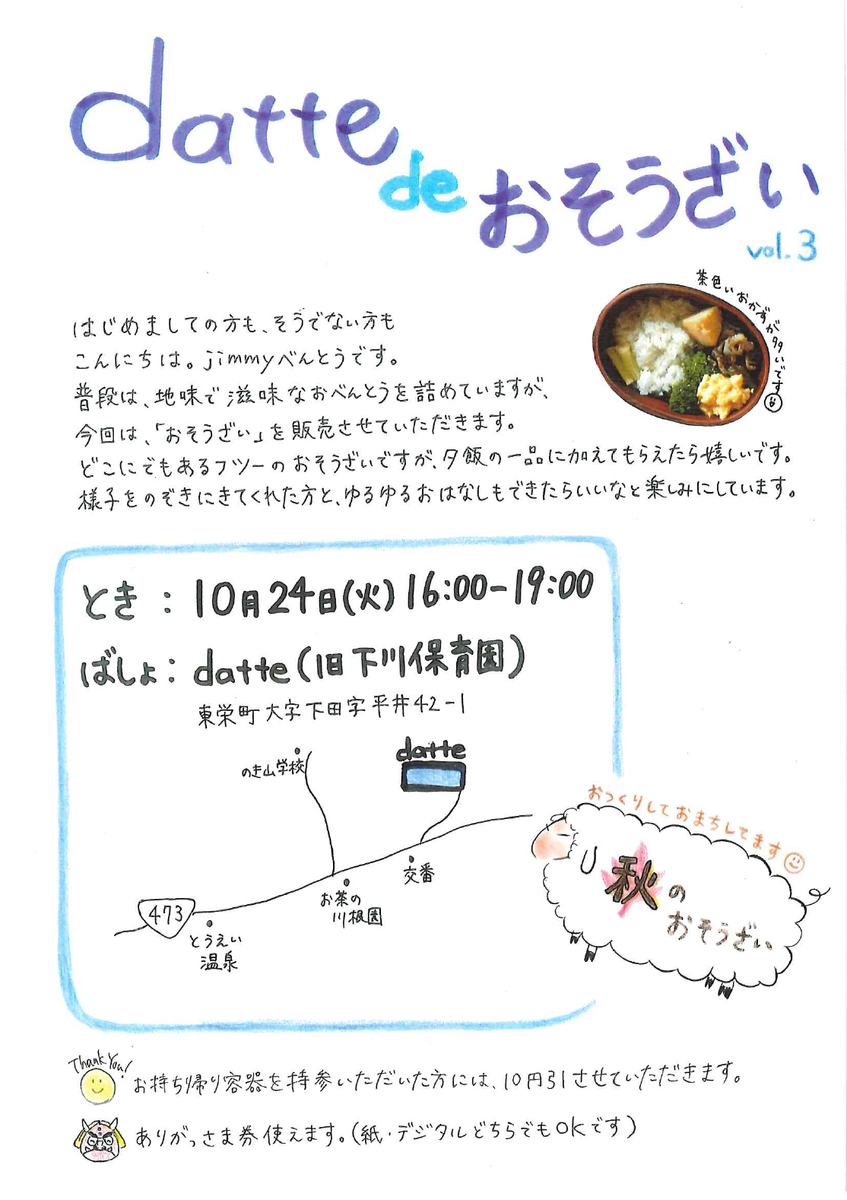 datte
de
おそうざい
vol.3
茶色いおかずが多いです
はじめましての方も、そうでない方も
こんにちは。jimmyべんとうです。
普段は、地味で滋味なおべんとうを詰めていますが、
今回は、「おそうざい」を販売させていただきます。
どこにでもあるフツーのおそうざいですが、夕飯の一品に加えてもらえたら嬉しいです。
様子をのぞきにきてくれた方と、ゆるゆるおはなしもできたらいいなと楽しみにしています。
とき：10月24日(火)16:00-19:00
ばしょ：datte(旧下川保育園)
東栄町大字下田字平井42-1
datte
のき山学校
交番
お茶の
川根園
473
とうえい
温泉
おつくりしておまちしてます
秋の
おそうざい
Thank You!
お持ち帰り容器を持参いただいた方には、10円引させていただきます。
ありがっさま券使えます。(紙・デジタルどちらでもOKです)